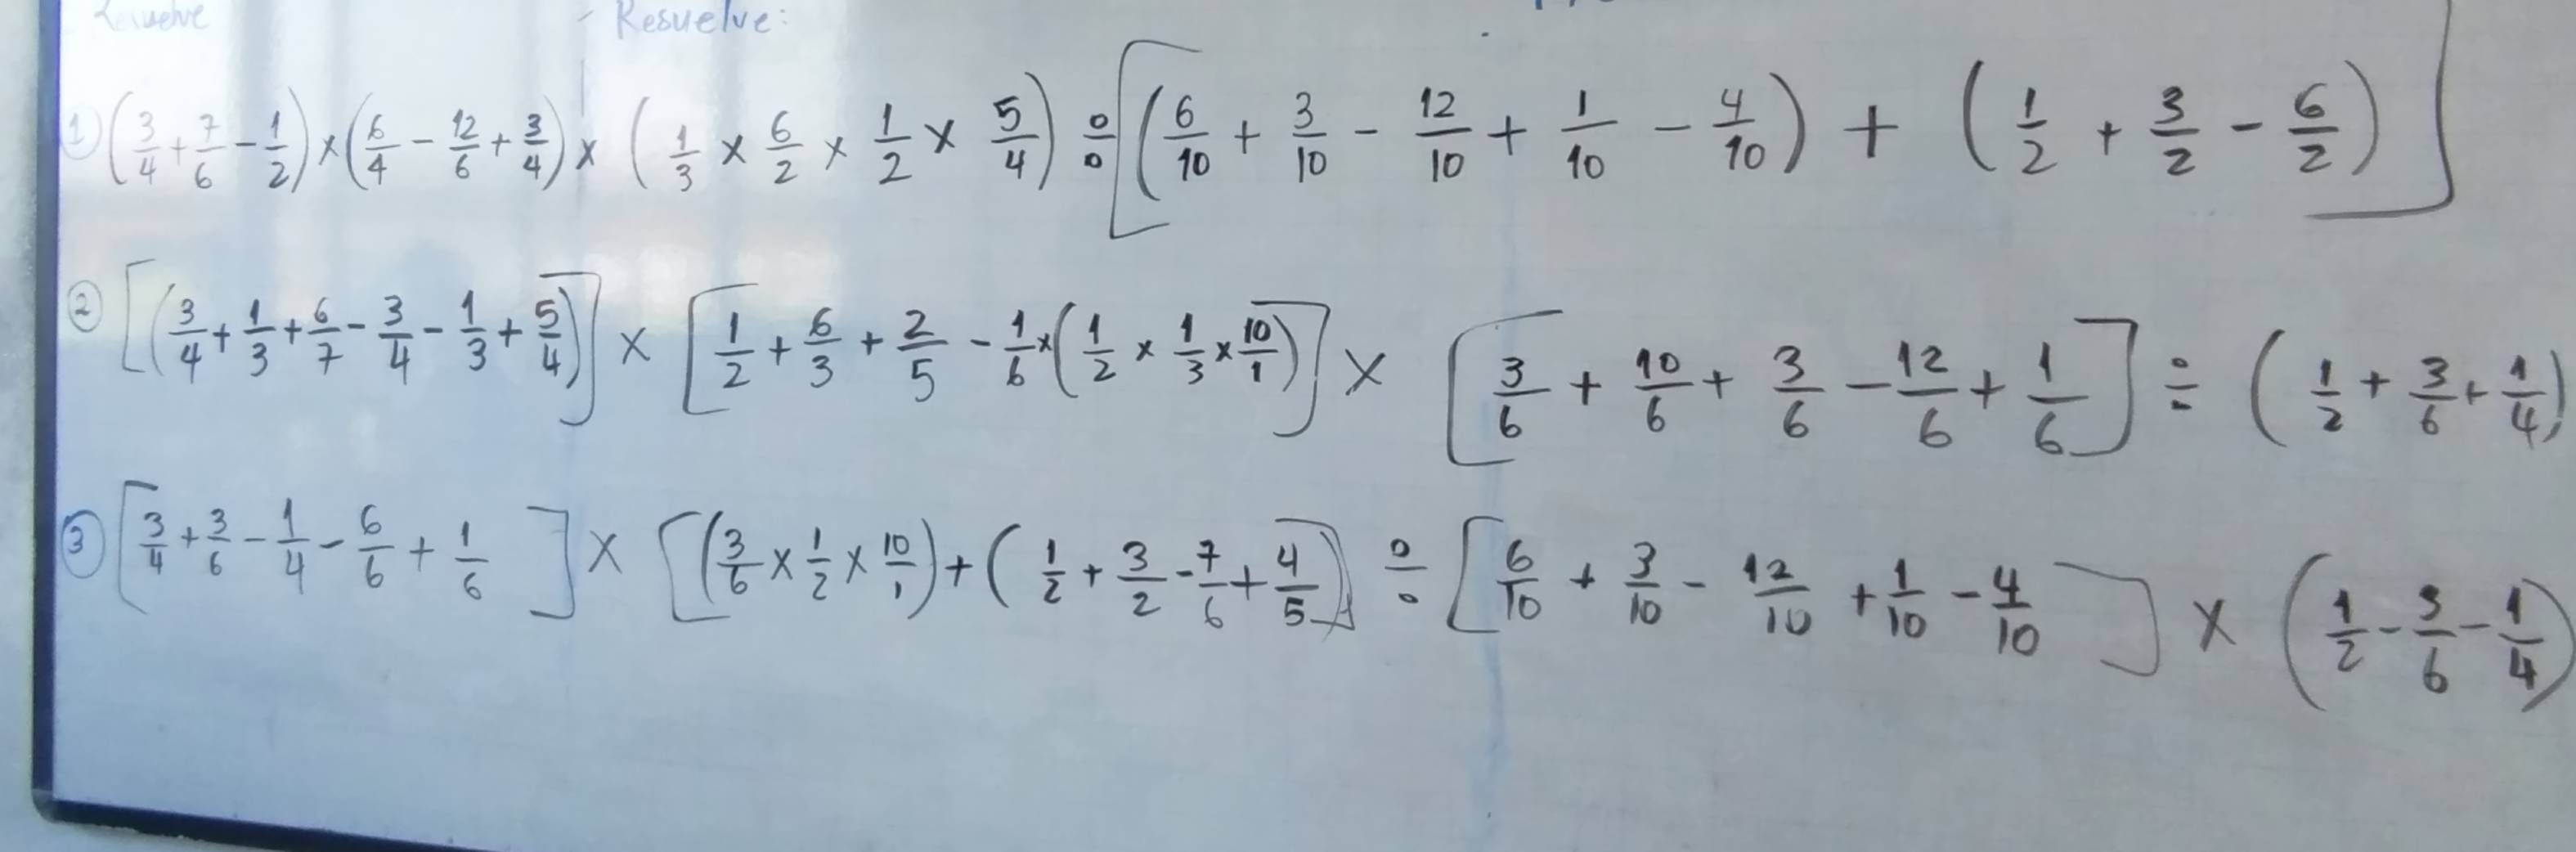 Resuelve Resuelve:
① (3/4 + 7/6 - 1/2) × (6/4 - 12/6 + 3/4) × (1/3 × 6/2 × 1/2 × 5/4) ÷ [(6/10 + 3/10 - 12/10 + 1/10 - 4/10) + (1/2 + 3/2 - 6/2)]
② [(3/4 + 1/3 + 6/7 - 3/4 - 1/3 + 5/4)] × [1/2 + 6/3 + 2/5 - 1/6 × (1/2 × 1/3 × 10/1)] × [3/6 + 10/6 + 3/6 - 12/6 + 1/6] ÷ (1/2 + 3/6 + 1/4)
③ [3/4 + 3/6 - 1/4 - 6/6 + 1/6] × [(3/6 × 1/2 × 10/1) + (1/2 + 3/2 - 7/6 + 4/5)] ÷ [6/10 + 3/10 - 12/10 + 1/10 - 4/10] × (1/2 - 3/6 - 1/4)